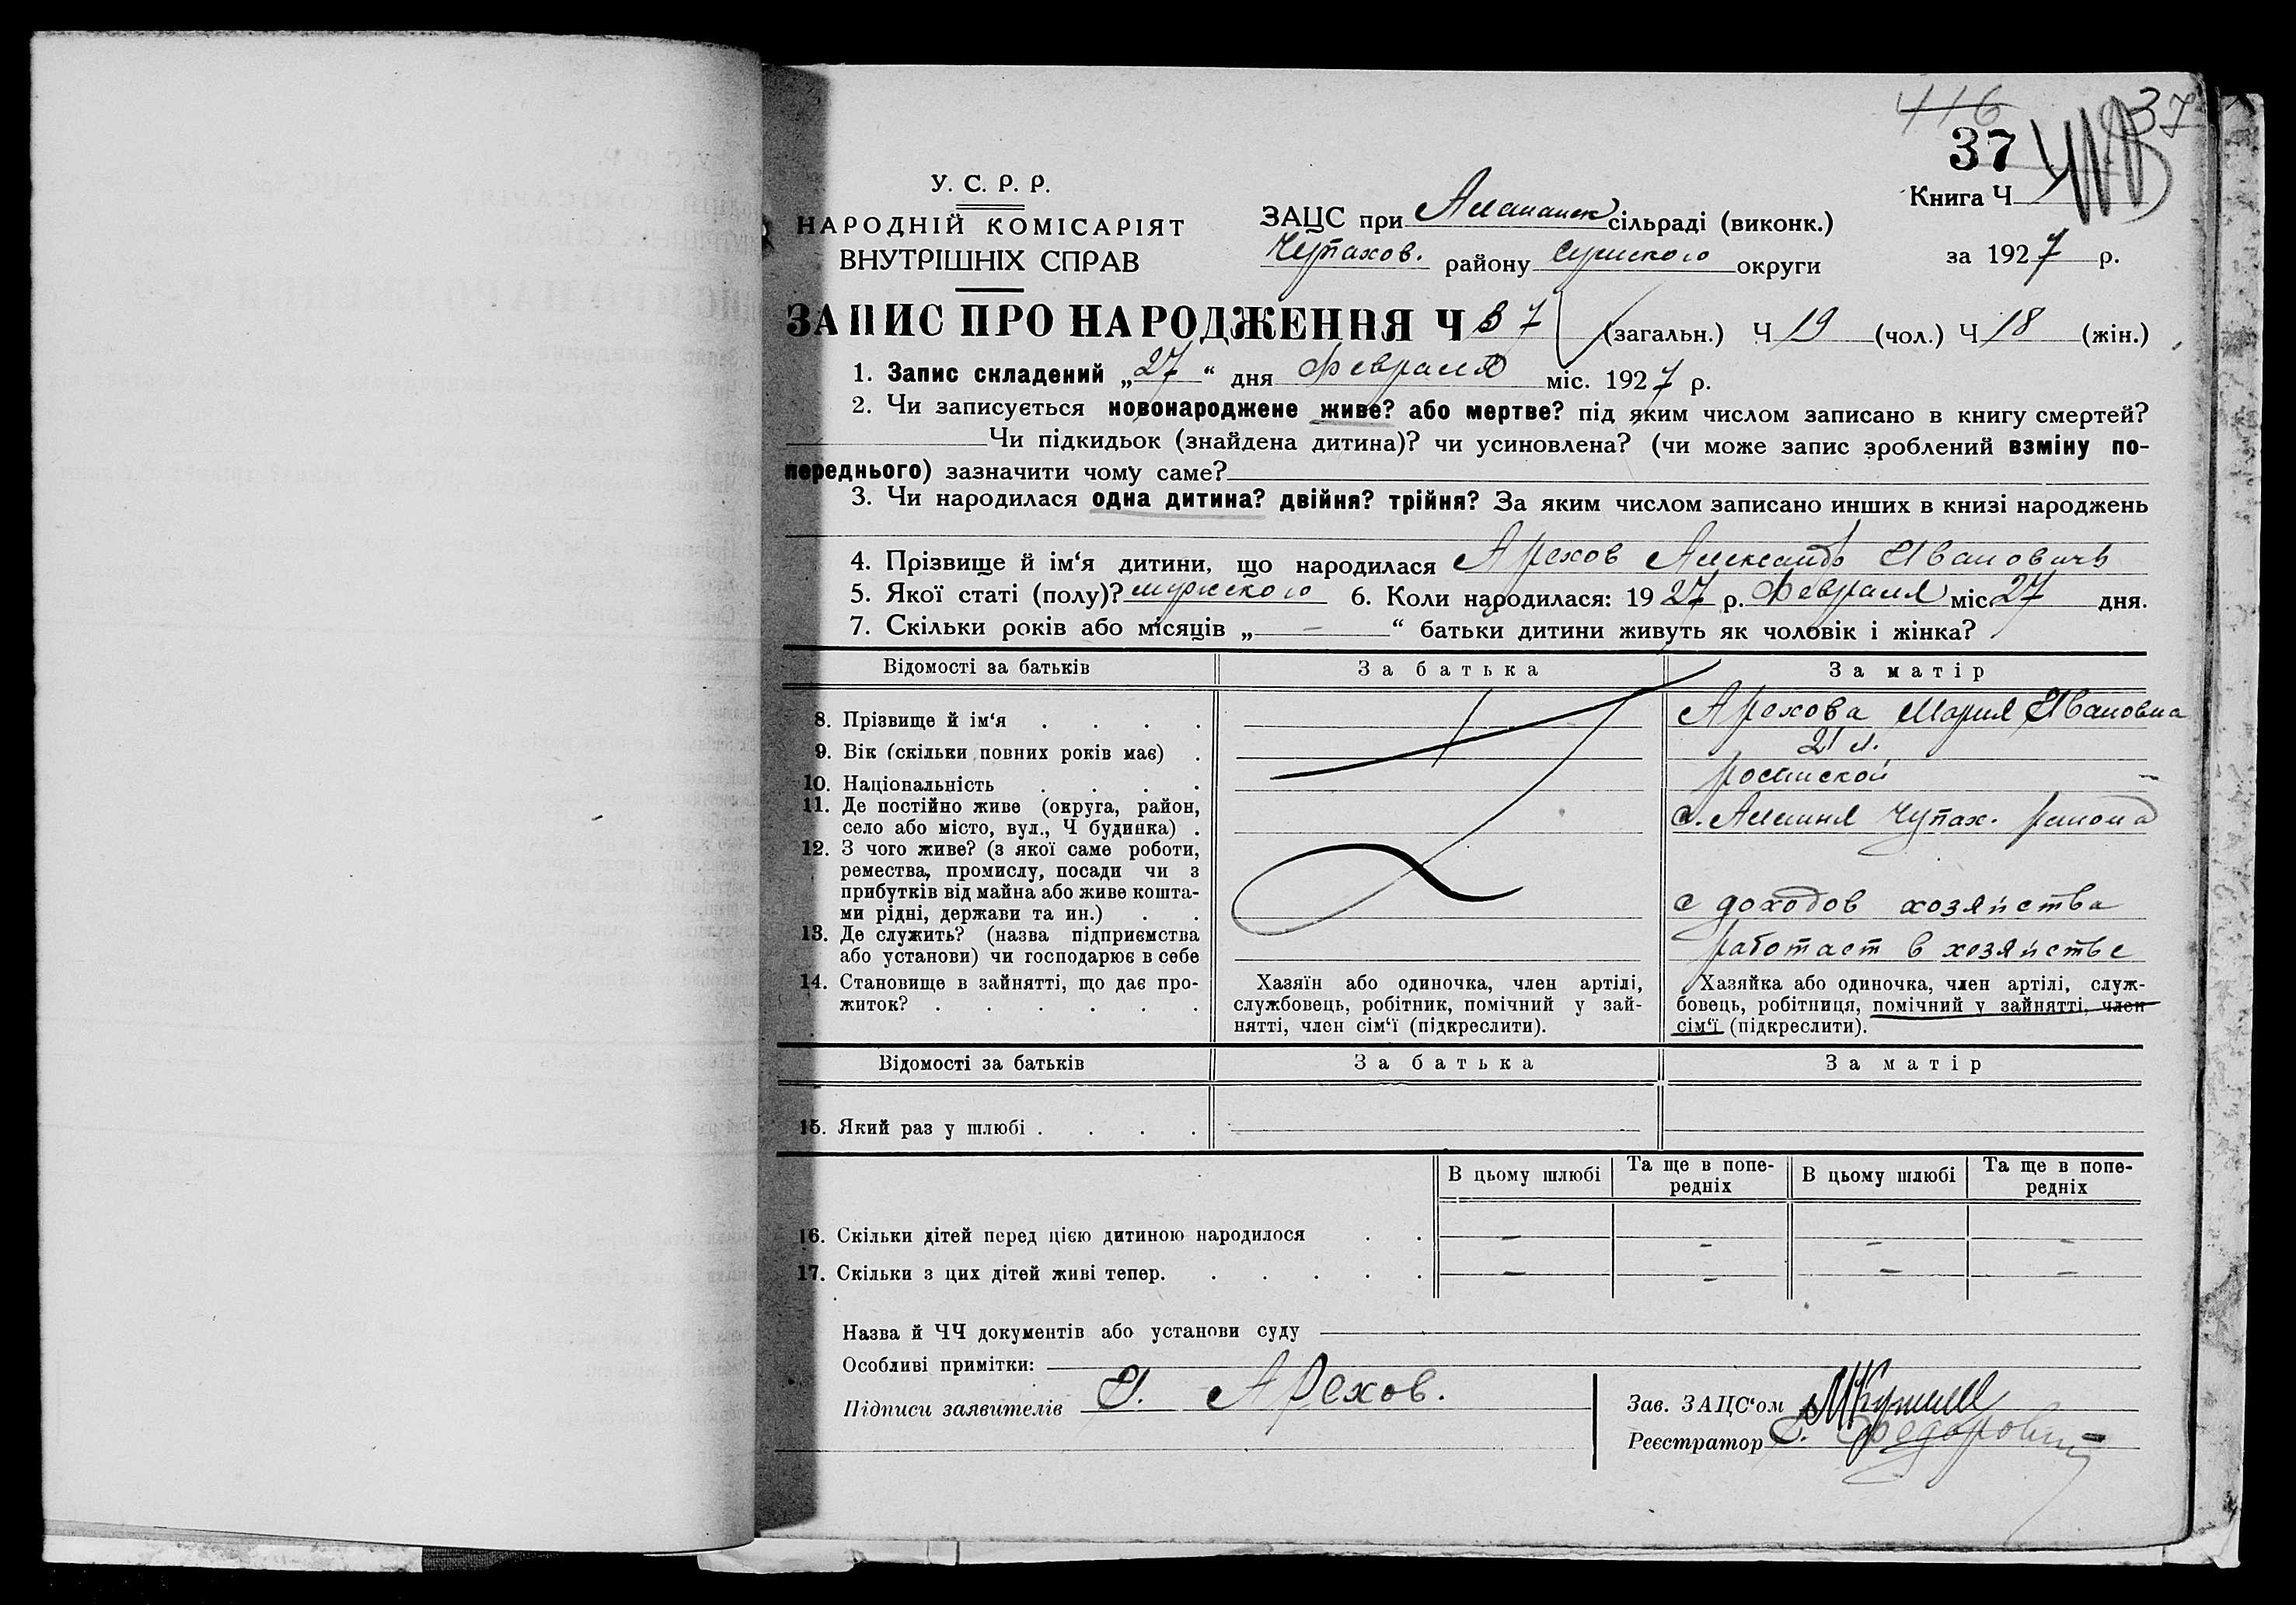 416 37
37
У. С. Р. Р.
НАРОДНІЙ КОМІСАРІЯТ
ВНУТРІШНІХ СПРАВ
ЗАЦС при сільраді (виконк.)
Чупахов. району Сумского округи
Книга Ч
за 1927 р.
ЗАПИС ПРО НАРОДЖЕННЯ Ч 37 (загальн.) Ч 19 (чол.) Ч 18 (жін.)
1. Запис складений „27“ дня Февраля міс. 1927 р.
2. Чи записується новонароджене живе? або мертве? під яким числом записано в книгу смертей?
Чи підкидьок (знайдена дитина)? чи усиновлена? (чи може запис зроблений взміну по-
переднього) зазначити чому саме?
3. Чи народилася одна дитина? двійня? трійня? За яким числом записано инших в книзі народжень
4. Прізвище й ім‘я дитини, що народилася Арехов Александр Ивановичь
5. Якої статі (полу)? мужеского 6. Коли народилася: 1927 р. Февраля міс. 27 дня.
7. Скільки років або місяців „ — “ батьки дитини живуть як чоловік і жінка?
Відомості за батьків За батька За матір
8. Прізвище й ім‘я . . . . Арехова Мария Ивановна
9. Вік (скільки повних років має) . 21 л.
10. Національність . . . .
11. Де постійно живе (округа, район,
село або місто, вул., Ч будинка) . с. Чупах. района
12. З чого живе? (з якої саме роботи,
ремества, промислу, посади чи з
прибутків від майна або живе кошта-
ми рідні, держави та ин.) . . с доходов хозяйства
13. Де служить? (назва підприємства
або установи) чи господарює в себе работает в хозяйстве
14. Становище в зайнятті, що дає про-
житок? . . . . . .
Хазяїн або одиночка, член артілі,
службовець, робітник, помічний у зай-
нятті, член сім‘ї (підкреслити).
Хазяйка або одиночка, член артілі, служ-
бовець, робітниця, помічний у зайнятті, член
сім‘ї (підкреслити).
Відомості за батьків За батька За матір
15. Який раз у шлюбі . . . .
В цьому шлюбі Та ще в попе-
редніх В цьому шлюбі Та ще в попе-
редніх
16. Скільки дітей перед цією дитиною народилося . . – – – –
17. Скільки з цих дітей живі тепер. . . . . . – – – –
Назва й ЧЧ документів або установи суду
Особливі примітки:
Підписи заявителів И. Арехов.
Зав. ЗАЦС‘ом
Реєстратор